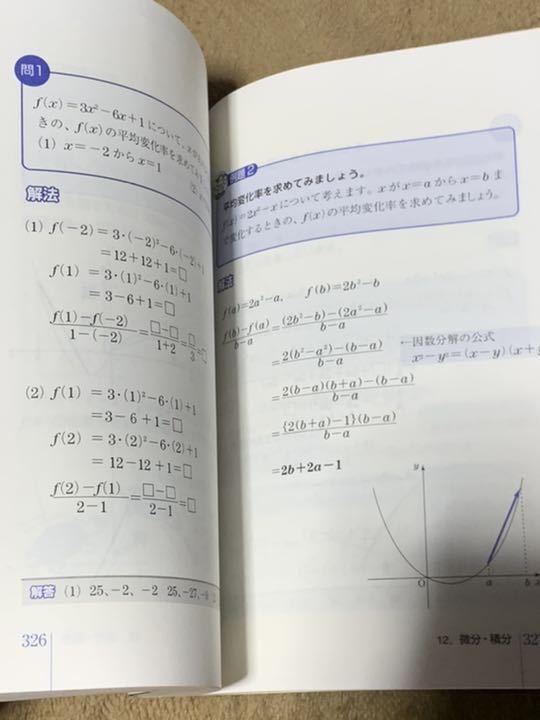 問1
f(x)=3x²-6x+1について、x
きの、f(x)の平均変化率を求めて
(1) x=-2からx=1
解法
(1) f(-2)=3·(-2)²-6·(-2)+1
=12+12+1=□
f(1)=3·(1)²-6·(1)+1
=3-6+1=□
f(1)-f(-2)/1-(-2)=□-□/1+2=□/3=□
(2) f(1)=3·(1)²-6·(1)+1
=3-6+1=□
f(2)=3·(2)²-6·(2)+1
=12-12+1=□
f(2)-f(1)/2-1=□-□/2-1=□
解答 (1) 25, -2, -2 25, -27, -9
326
例題2
平均変化率を求めてみましょう。
f(x)=2x²-xについて考えます。xがx=aからx=bま
で変化するときの、f(x)の平均変化率を求めてみましょう。
解法
f(a)=2a²-a, f(b)=2b²-b
f(b)-f(a)/b-a=(2b²-b)-(2a²-a)/b-a
=2(b²-a²)-(b-a)/b-a
←因数分解の公式
x²-y²=(x-y)(x+
=2(b-a)(b+a)-(b-a)/b-a
={2(b+a)-1}(b-a)/b-a
=2b+2a-1
y
O a b x
12. 微分・積分 32